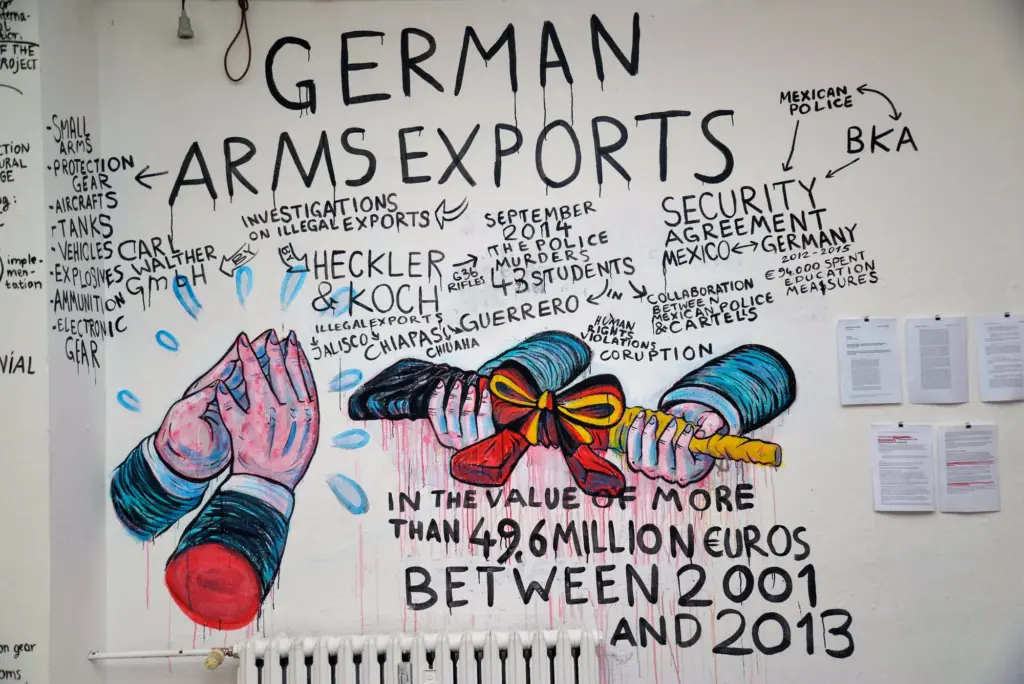 GERMAN
ARMS EXPORTS
-SMALL
ARMS
-PROTECTION
GEAR
-AIRCRAFTS
-TANKS
-VEHICLES
-EXPLOSIVES
-AMMUNITION
-ELECTRONIC
GEAR
CARL
WALTHER
GMBH
INVESTIGATIONS
ON ILLEGAL EXPORTS
HECKLER
& KOCH
ILLEGAL EXPORTS
JALISCO
CHIAPAS
CHIUAHA
GUERRERO
G36
RIFLES
SEPTEMBER
2014
THE POLICE
MURDERS
43 STUDENTS
IN
HUMAN
RIGHTS
VIOLATIONS
CORUPTION
COLLABORATION
BETWEEN
MEXICAN POLICE
& CARTELS
MEXICAN
POLICE
BKA
SECURITY
AGREEMENT
MEXICO ↔ GERMANY
2012-2015
€94.000 SPENT
EDUCATION
MEASURES
IN THE VALUE OF MORE
THAN 49,6 MILLION €UROS
BETWEEN 2001
AND 2013
OF THE
PROJECT
imple-
men-
tation